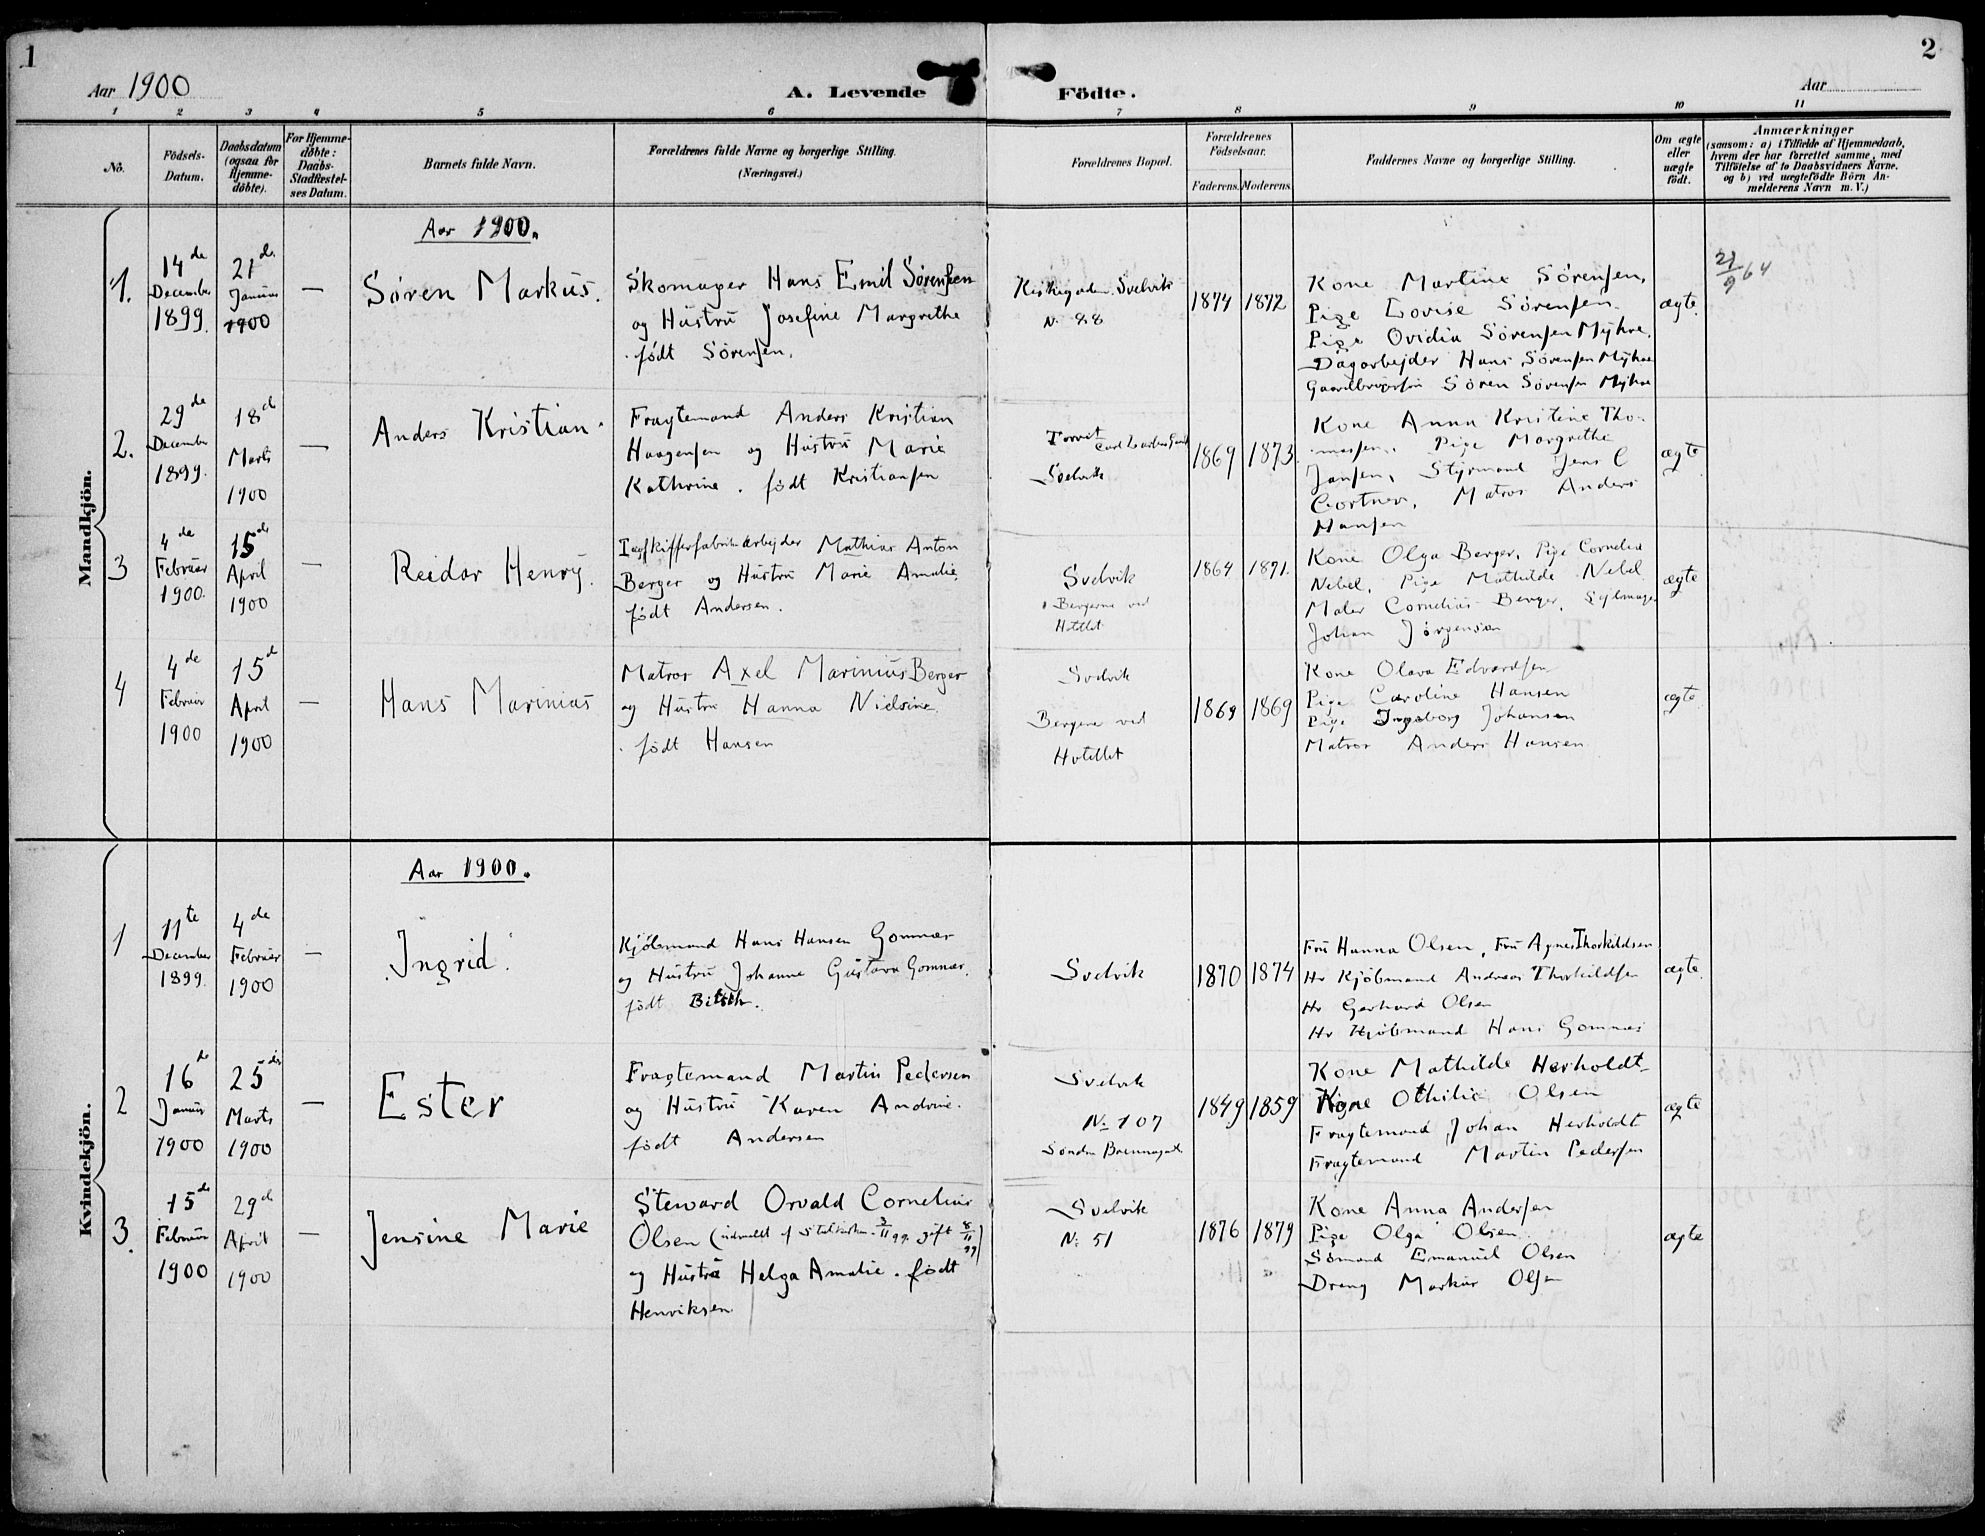 1
2
Aar 1900
A. Levende Födte.
Aar
1 2 3 4 5 6 7 8 9 10 11
No.
Födsels-
Datum.
Daabsdatum
(ogsaa for
Hjemme-
döbte).
For Hjemme-
döbte:
Daabs-
Stadfæstel-
ses Datum.
Barnets fulde Navn.
Forældrenes fulde Navne og borgerlige Stilling.
(Næringsvei.)
Forældrenes Bopæl.
Forældrenes
Födselsaar.
Faderens.
Moderens.
Faddernes Navne og borgerlige Stilling.
Om ægte
eller
uægte
født.
Anmærkninger
(saasom: a) i Tilfælde af Hjemmedaab,
hvem der har forrettet samme, med
Tilföielse af to Daabsvidners Navne.
og b) ved uægtefödte Börn An-
melderens Navn m. V.)
Mandkjön.
Aar 1900.
1.
14de
December
1899.
21de
Januar
1900
—
Søren Markus.
Skomager Hans Emil Sørensen
og Hustru Josefine Margrethe
født Sørensen.
Kirkegaden Svelvik
N. 88
1874
1872
Kone Martine Sørensen,
Pige Lovise Sørensen
Pige Ovidia Sørensen Myhre.
Dagarbejder Hans Sørensen Myhre
Søren Sørensen Myhre
ægte.
21/9 64
2.
29de
December
1899.
18de
Marts
1900
—
Anders Kristian.
Fragtemand Anders Kristian
Haagensen og Hustru Marie
Kathrine. født Kristiansen
Torvet
Svelvik
1869
1873
Kone Anna Kristine Tho-
massen, Pige Margrethe
Jansen, Styrmand Jens C
Gortner, Matros Anders
Hansen
ægte
3
4de
Februar
1900.
15de
April
1900
—
Reidar Henry.
Mathias Anton
Berger og Hustru Marie Amalie,
født Andersen.
Svelvik
Bergerne ved
Hotellet
1864
1871.
Kone Olga Berger, Pige Cornelia
Nebel, Pige Mathilde Nebel
Maler Cornelius Berger, Sejlmager
Johan Jørgensen
ægte
4
4de
Februar
1900
15de
April
1900
—
Hans Marinius
Matros Axel Marinius Berger
og Hustru Hanna Nielsine
født Hansen
Svelvik
Bergene ved
Hotellet
1869
1869
Kone Olava Edvardsen
Pige Caroline Hansen
Pige Ingeborg Johansen
Matros Anders Hansen
ægte
Kvindekjön.
Aar 1900.
1
11te
December
1899
4de
Februar
1900
—
Ingrid.
Kjöbmand Hans Hansen Gomnæs
og Hustru Johanne Gustava Gomnæs.
født
Svelvik
1870
1874
Fru Hanna Olsen, Fru Agnes Thorkildsen
Hr Kjöbmand Andreas Thorkildsen
Hr Gerhard Olsen
Hr Kjöbmand Hans Gomnæs
ægte
2
16de
Januar
1900
25de
Marts
1900
—
Ester
Fragtemand Martin Pedersen
og Hustru Karen Andrine.
født Andersen
Svelvik
N. 107
Søndre
1849
1859
Kone Mathilde Herholdt
Kone Othilie Olsen
Fragtemand Johan Herholdt
Fragtemand Martin Pedersen
ægte
3.
15de
Februar
1900
29de
April
1900
—
Jensine Marie
Steward Orvald Cornelius
Olsen (udmeldt af Statskirken 3/11 99. gift 8/11 99)
og Hustru Helga Amalie. født
Henriksen
Svelvik
N. 51
1876
1879
Kone Anna Andersen
Pige Olga Olsen
Sømand Emanuel Olsen
Dreng Markus Olsen
ægte